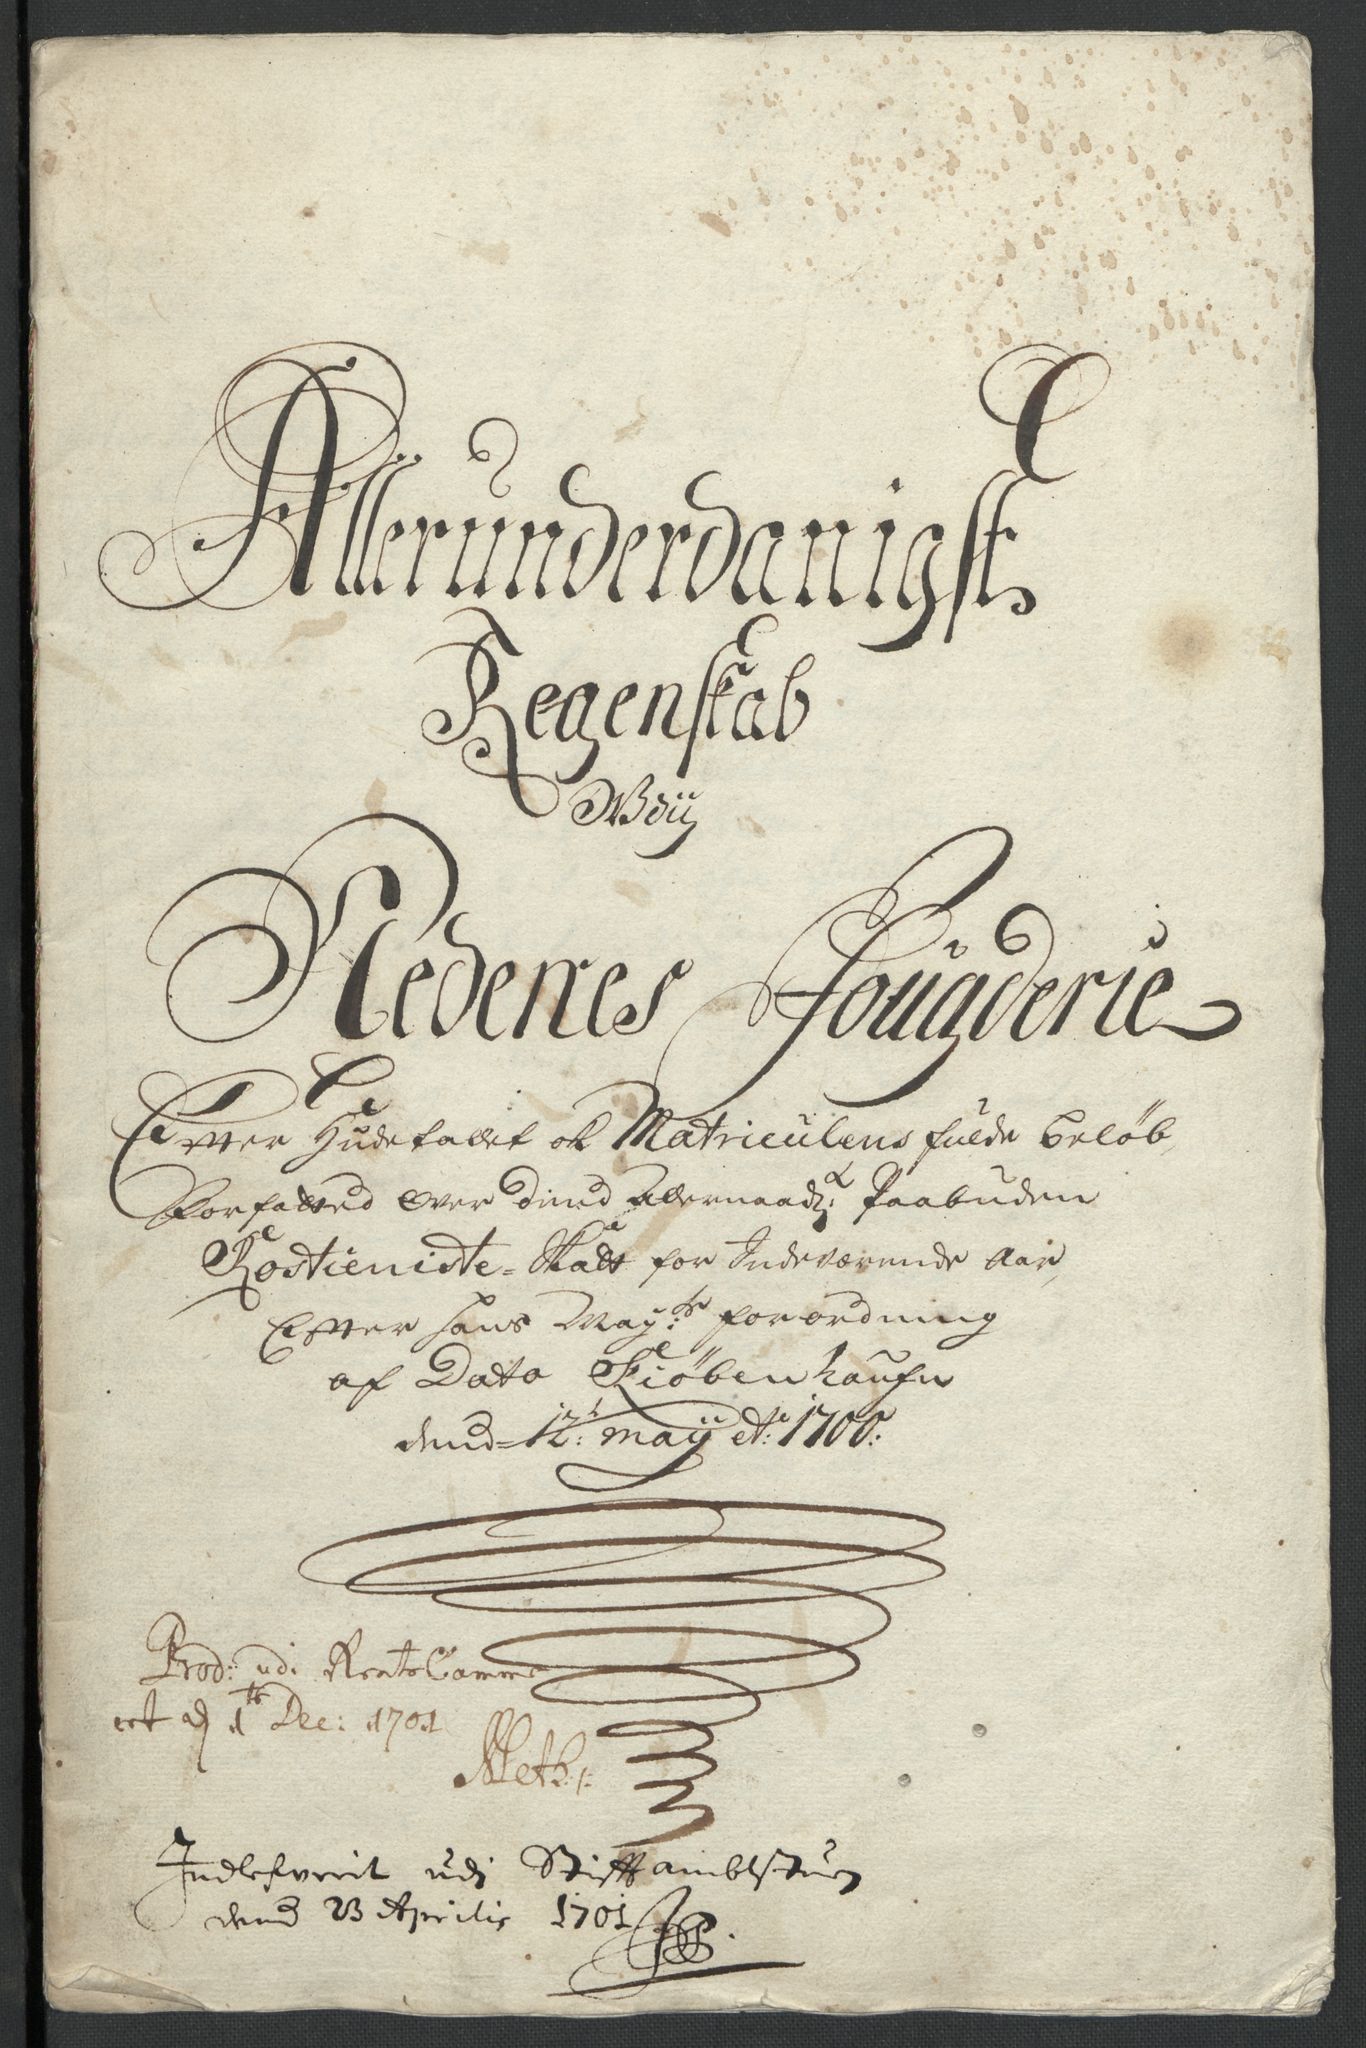 Allerunderdanigst
Regenskab
Wdij
Nedenes Fougderie
Effter Hudetallet ok Matriculens fulde beløb,
Forfatted over dend allernaadz: Paabuden
Kostieniste-Skatt for Indeværende Aar,
Effter Hans May:ts forordning
af Dato Kiøbenhaufn
dend 12: maij Ao: 1700:
Prod: udi Rente Camme
ret d 1te Dec: 1701
Indlefverit udj Stifftambtstuen
dend 23 Aprilis 1701